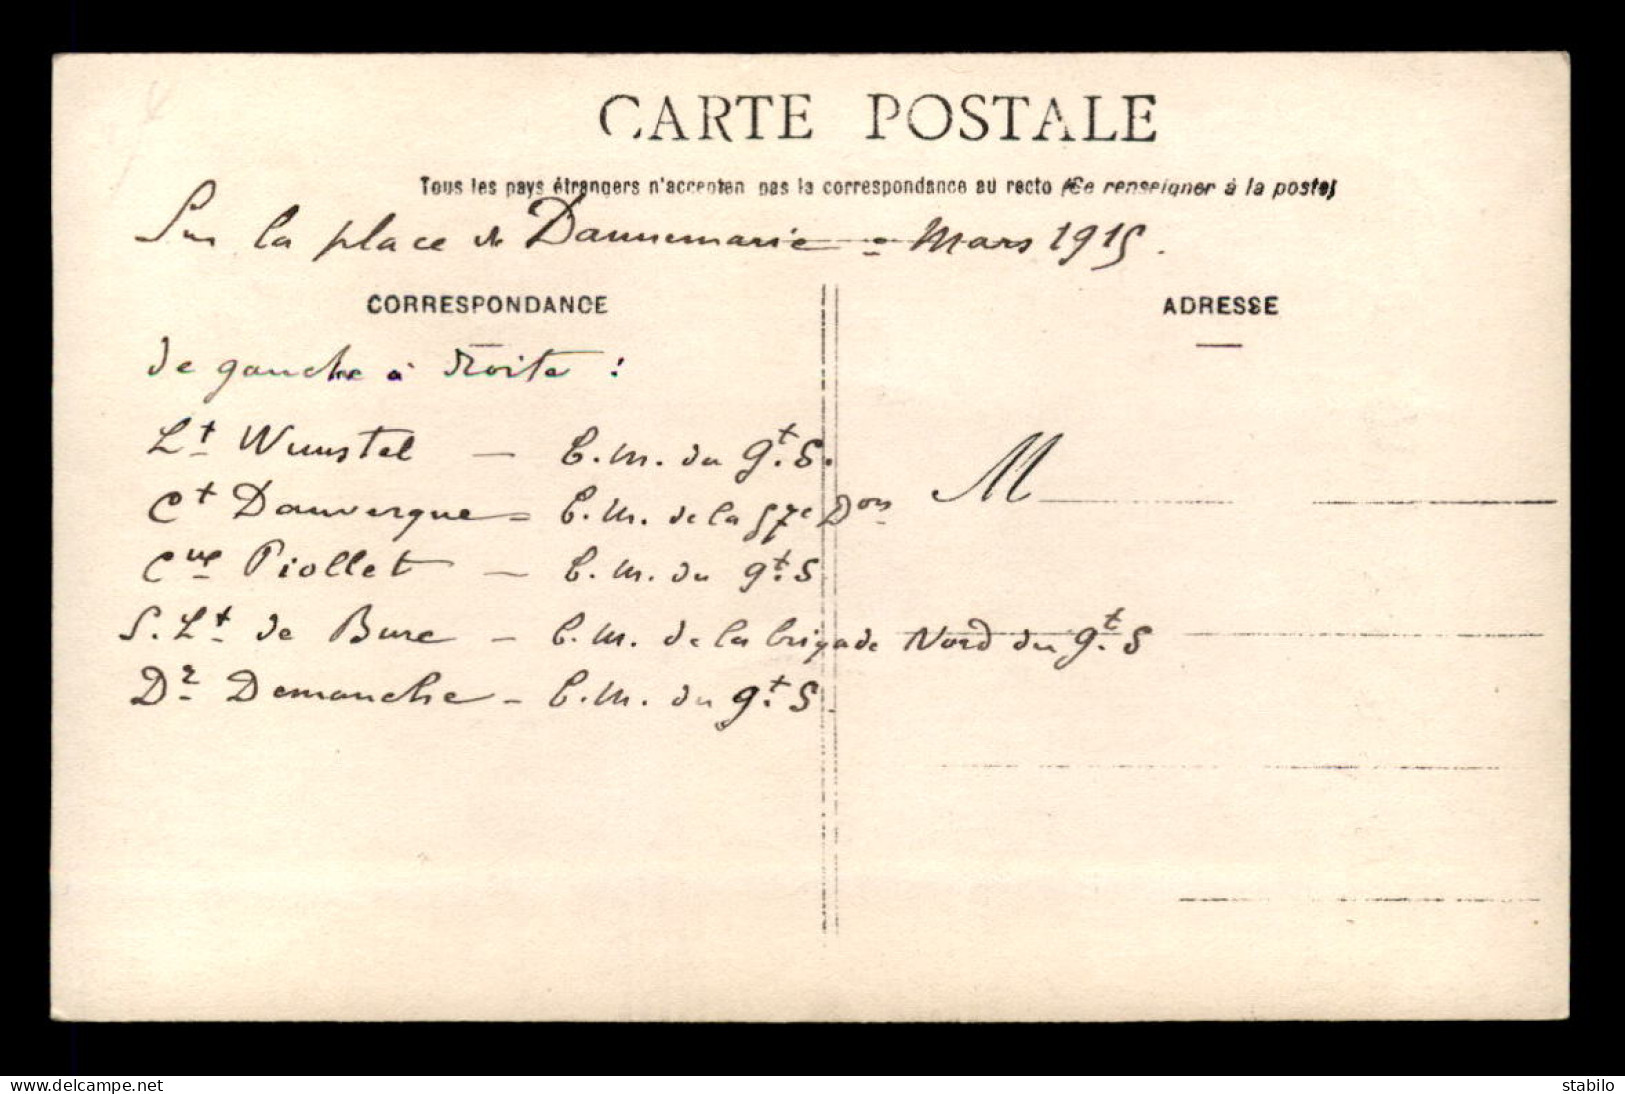 CARTE POSTALE
Tous les pays étrangers n'acceptent pas la correspondance au recto (Se renseigner à la poste)
Sur la place de Dannemarie = Mars 1915.
CORRESPONDANCE
ADRESSE
de gauche à droite :
Lt Wunstel — E.M. du gt. S.
Ct Dauvergne = E.M. de la 57e Don
M
Cne Piollet — E.M. du gt. S
S. Lt de Bure — E.M. de la brigade Nord du gt. S
Dr Demanche — E.M. du gt. S.
www.delcampe.net
stabilo